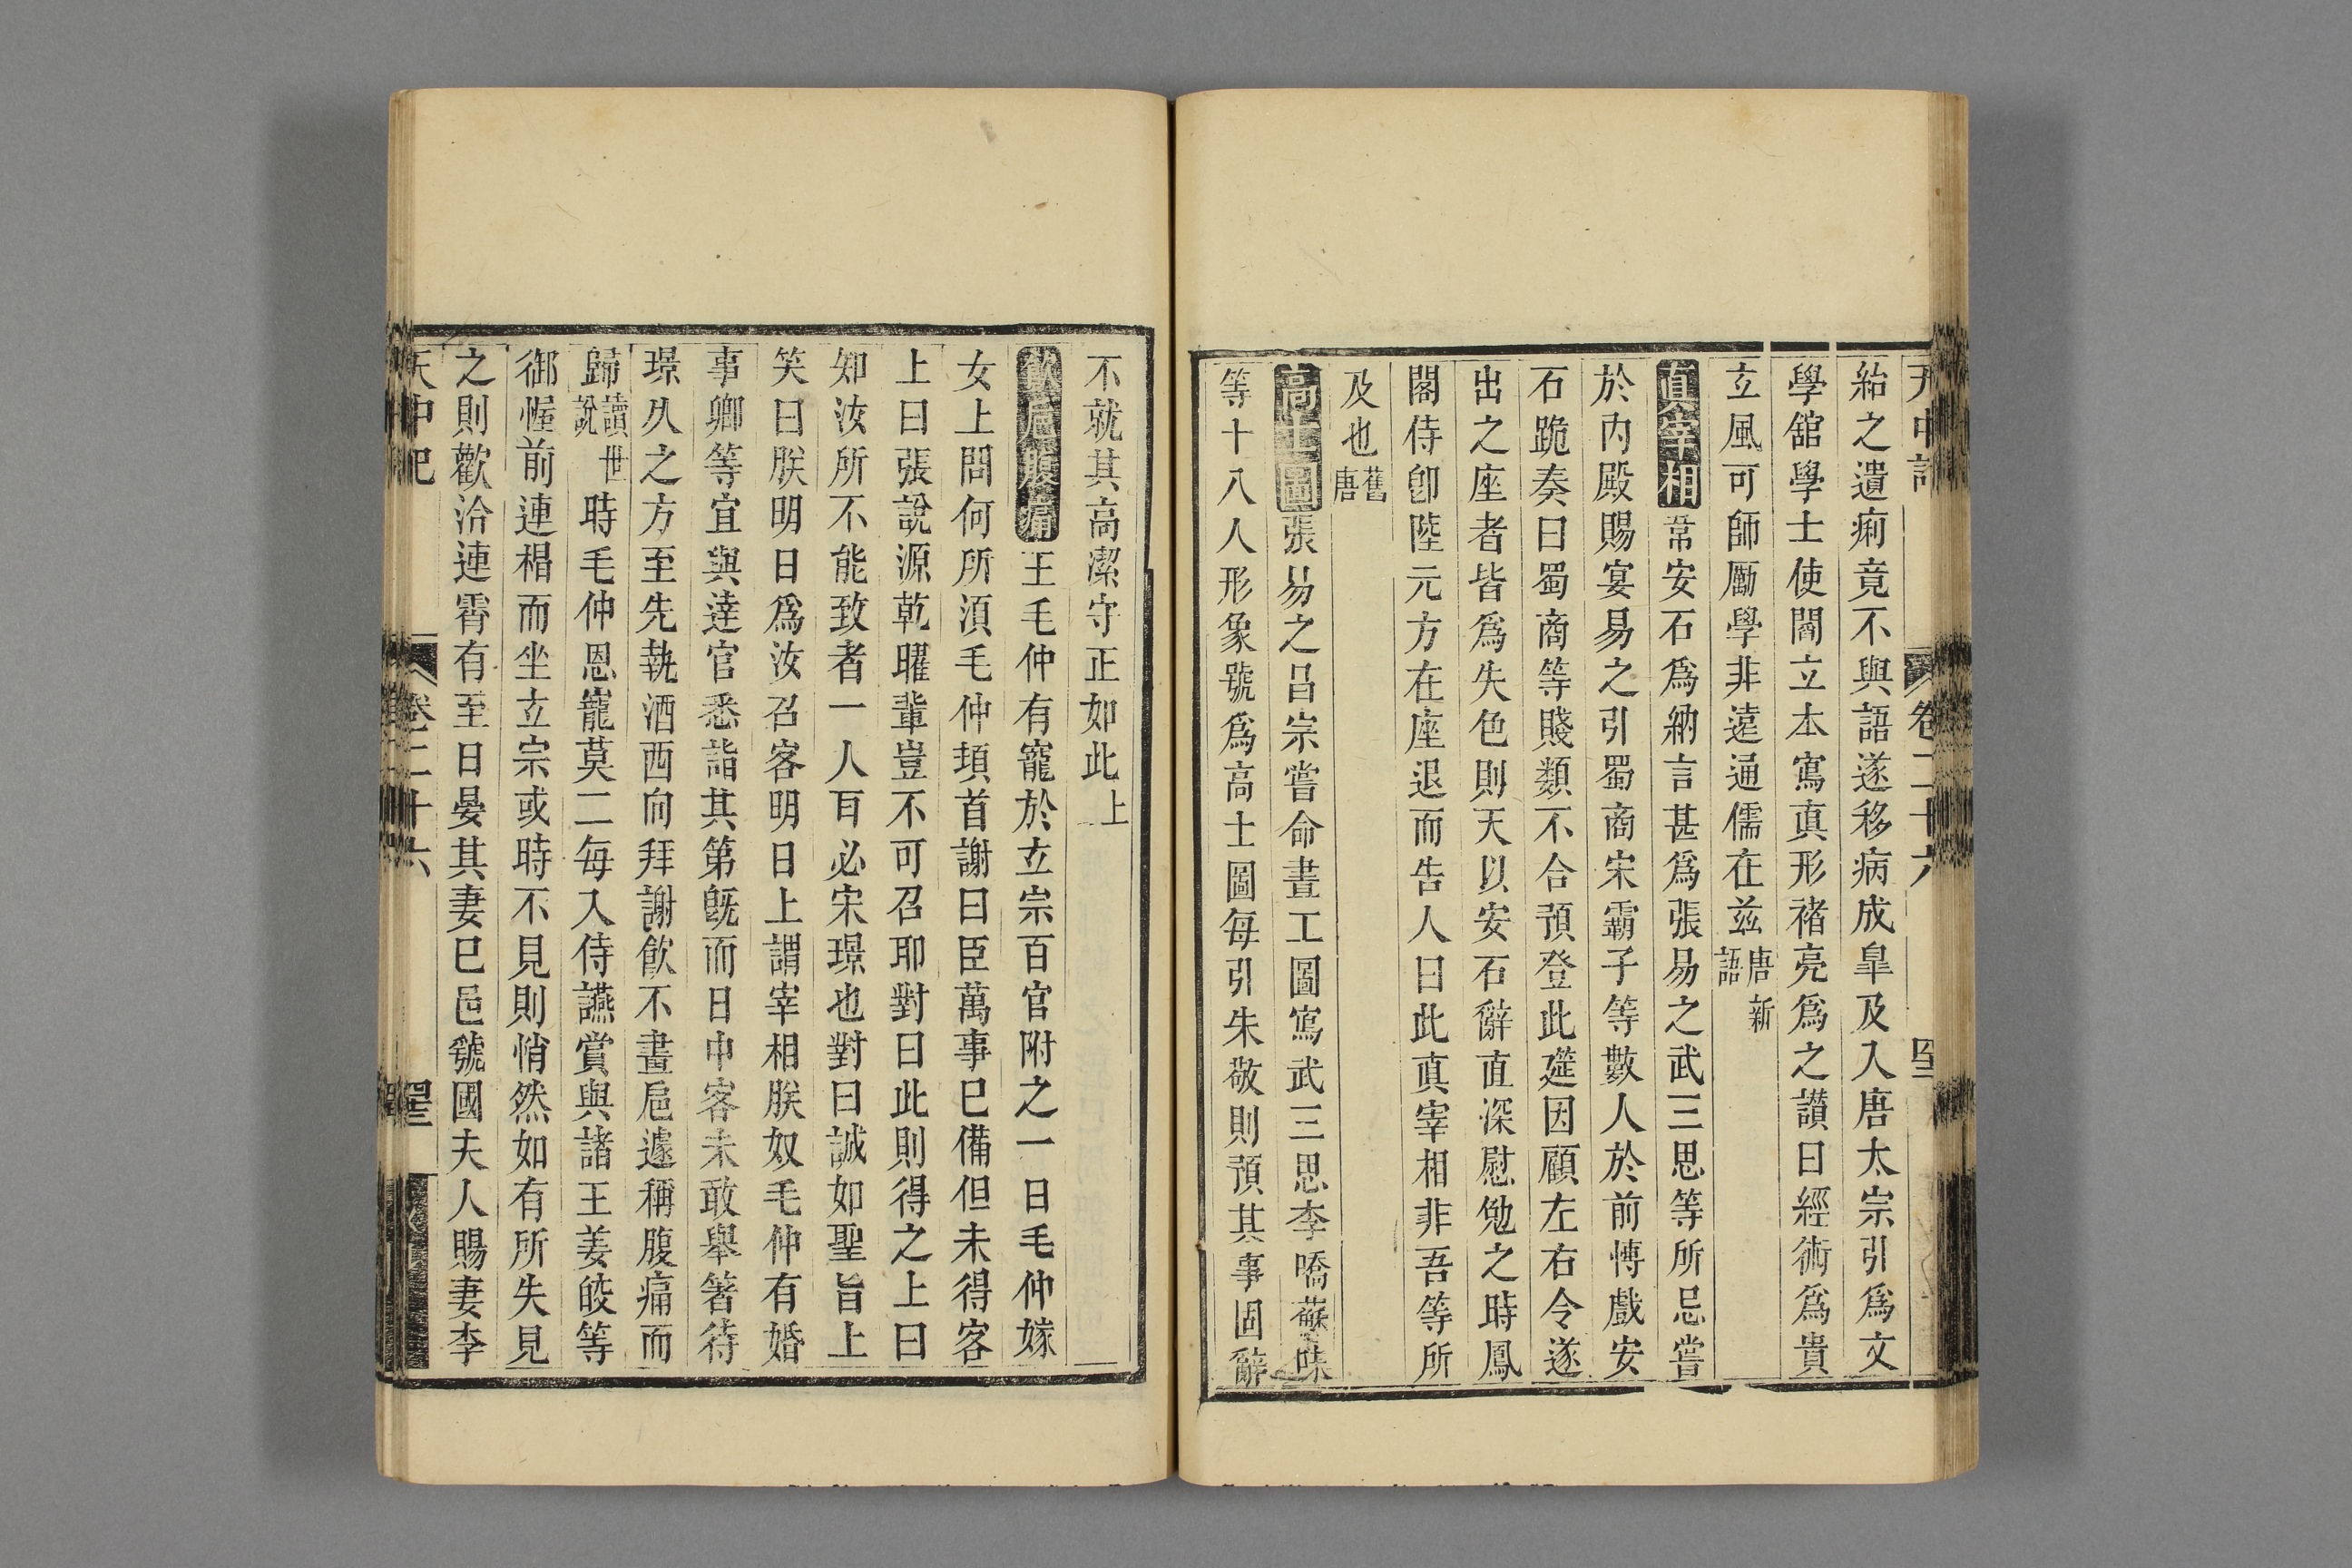 天中記 卷二十六
紿之遺痢竟不與語遂移病成皐及入唐太宗引爲文
學舘學士使閻立本寫真形禇亮爲之讃曰經術爲貴
立風可師勵學非遠通儒在茲唐新語
真宰相韋安石爲納言甚爲張易之武三思等所忌嘗
於內殿賜宴易之引蜀商宋霸子等數人於前愽戲安
石跪奏曰蜀商等賤類不合預登此筵因顧左右令遂
出之座者皆爲失色則天以安石辭直深慰勉之時鳳
閣侍卽陸元方在座退而告人曰此真宰相非吾等所
及也舊唐
高士圖張易之昌宗嘗命畫工圖寫武三思李嶠蘇味
等十八人形象號爲高士圖每引朱敬則預其事固辭
不就其高潔守正如此上
飲卮腹痛王毛仲有寵於玄宗百官附之一日毛仲嫁
女上問何所湏毛仲頓首謝曰臣萬事巳備但未得客
上曰張說源乾曜輩豈不可召耶對曰此則得之上曰
知汝所不能致者一人耳必宋璟也對曰誠如聖旨上
笑曰朕明日爲汝召客明日上謂宰相朕奴毛仲有婚
事卿等宜與逹官悉詣其第旣而日中客未敢舉箸待
璟久之方至先執酒西向拜謝飲不盡卮遽稱腹痛而
歸續世說 時毛仲恩寵莫二每入侍讌賞與諸王姜皎等
御幄前連榻而坐玄宗或時不見則悄然如有所失見
之則歡洽連霄有至日晏其妻巳邑號國夫人賜妻李
天中記 卷二十六